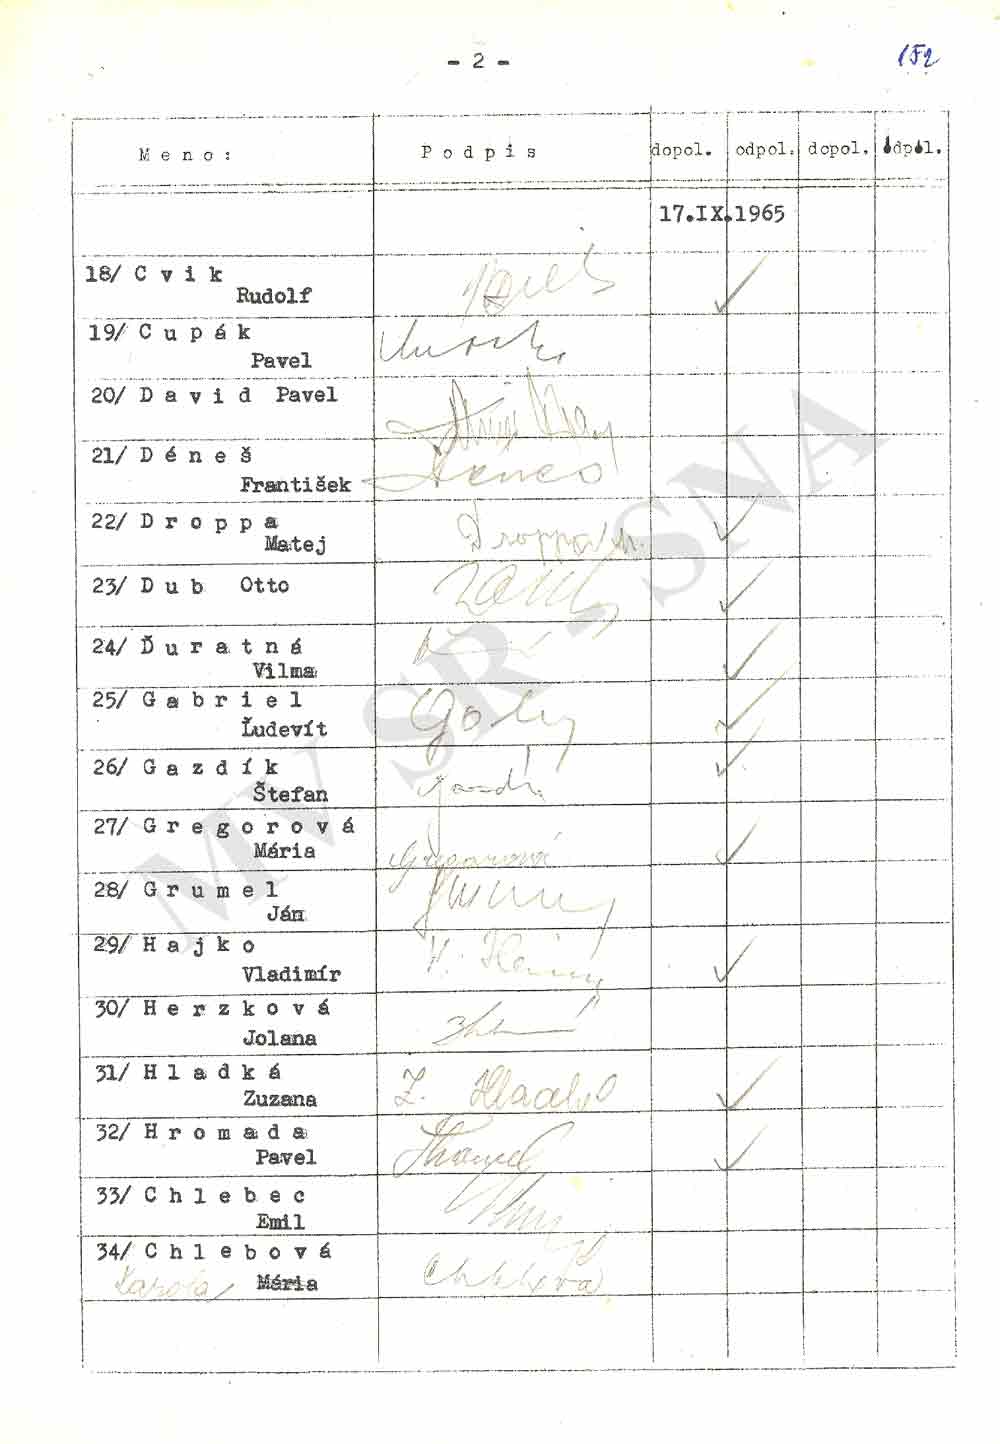 - 2 -
152
Meno: Podpis dopol. odpol. dopol. odpol.
17.IX.1965
18/ Cvik
Rudolf
19/ Cupák
Pavel
20/ David Pavel
21/ Déneš
František
22/ Droppa
Matej
Droppa M.
23/ Dub Otto
24/ Ďuratná
Vilma
25/ Gabriel
Ľudevít
26/ Gazdík
Štefan
27/ Gregorová
Mária
Gregorová
28/ Grumel
Ján
29/ Hajko
Vladimír
30/ Herzková
Jolana
31/ Hladká
Zuzana
Z. Hladká
32/ Hromada
Pavel
33/ Chlebec
Emil
34/ Chlebová
Karola Mária
Chlebová
MV SR - SNA